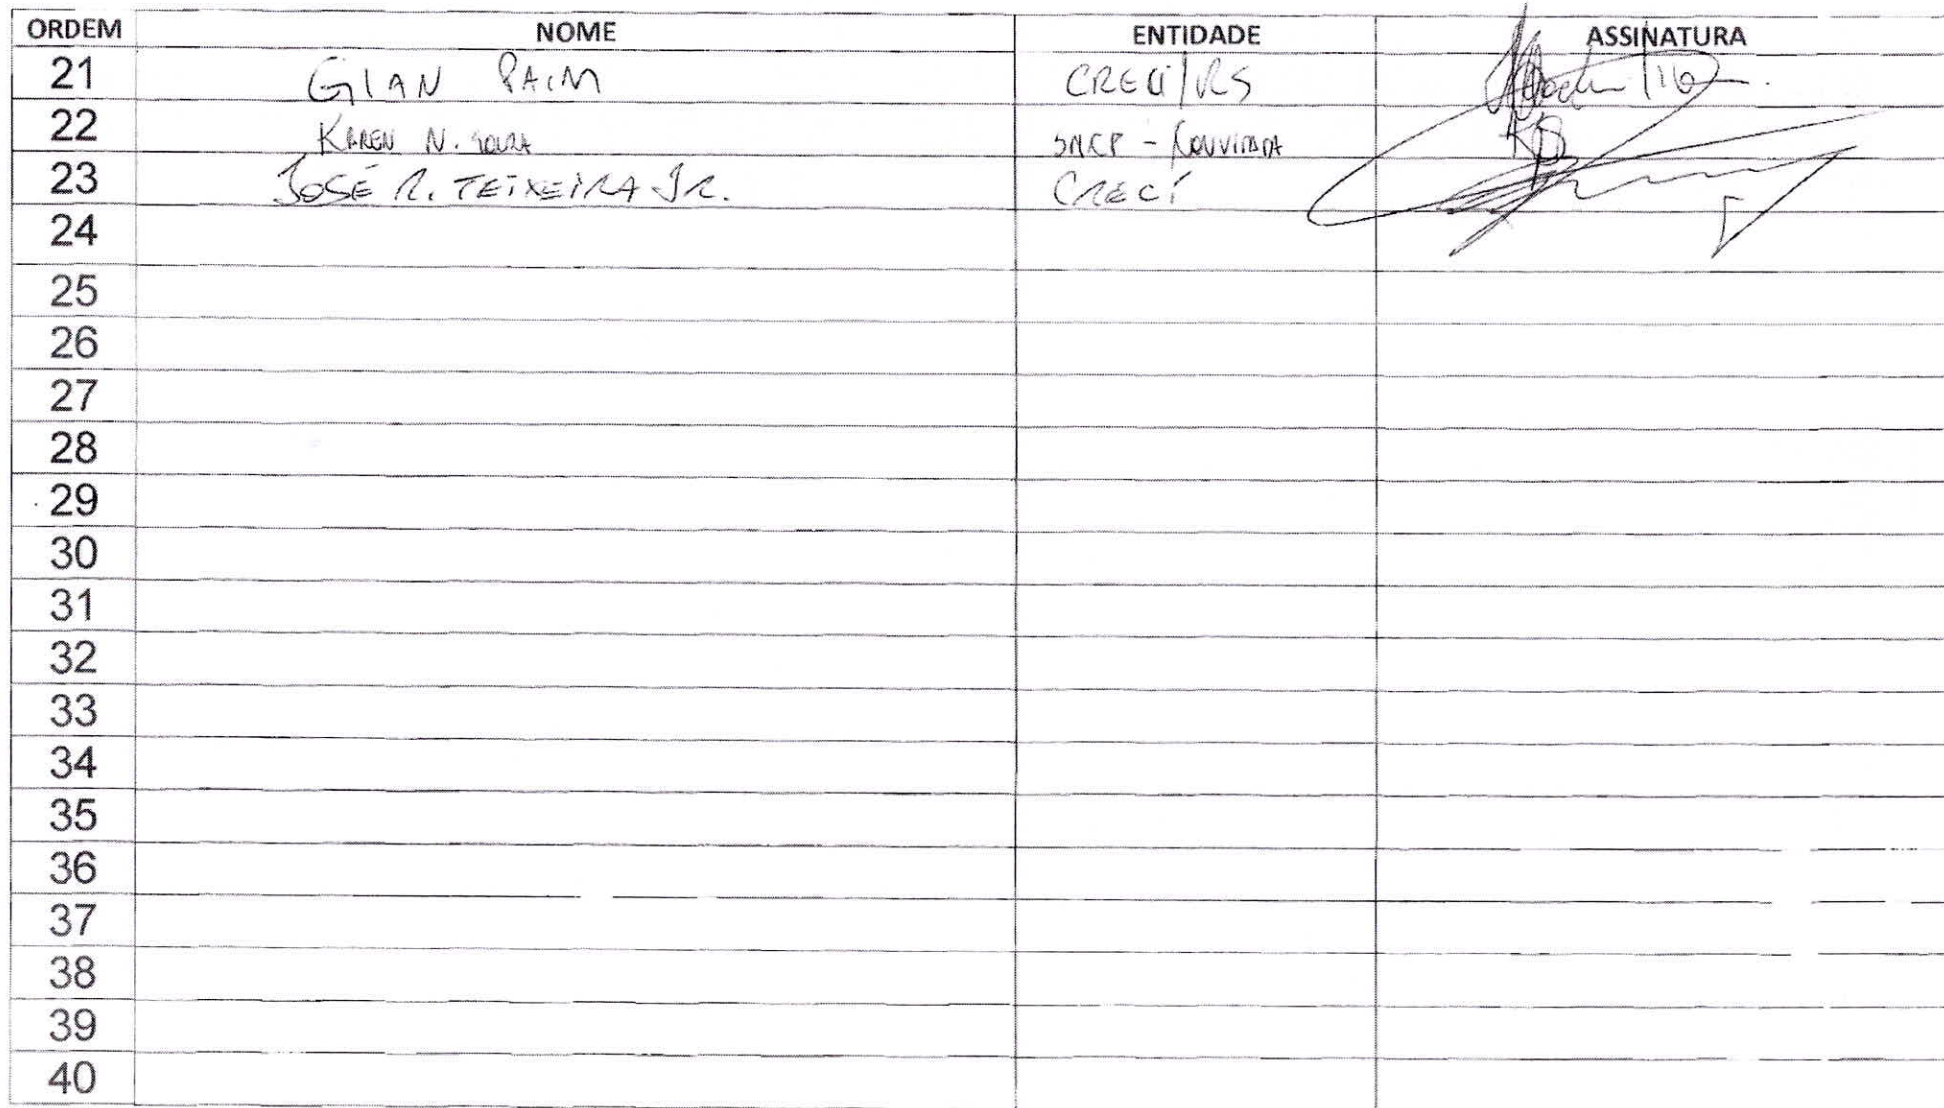 ORDEM NOME ENTIDADE ASSINATURA
21 GIAN PAIM CRECI/RS
22 KAREN N. SOUZA - CONVIDADA
23 JOSÉ R. TEIXEIRA JR. CRECÍ
24
25
26
27
28
29
30
31
32
33
34
35
36
37
38
39
40